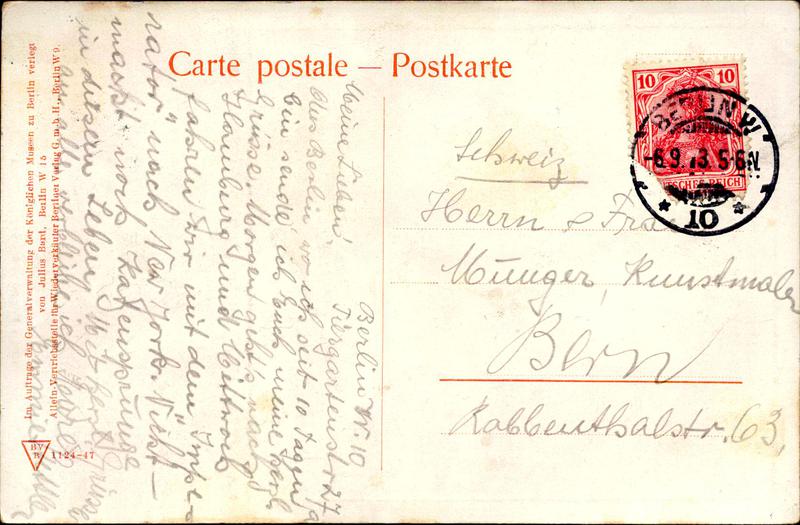 Carte postale — Postkarte
Im Auftrage der Generalverwaltung der Königlichen Museen zu Berlin verlegt
von Julius Bard, Berlin W 15
Allein-Vertriebsstelle für Wiederverkäufer Berliner Verlag G. m. b. H., Berlin W 9.
1124-47
10 10
DEUTSCHES REICH
BERLIN W
-6.9.13. 5-6N.
* 10 *
Schweiz
Herrn & Frau
Munger, Kunstmaler
Bern
Rabbenthalstr. 63.
Berlin W. 10
Tiergartenstr. 27
Meine Lieben!
Aus Berlin, wo ich seit 10 Tagen
bin sende ich Euch meine herzl
Grüsse. Morgen geht's nach
Hamburg und Mittwoch
fahren wir mit dem Impe-
rator" nach New York. Nicht
macht noch Katzensprünge
in diesem Leben. Mit herzl. Grüssen